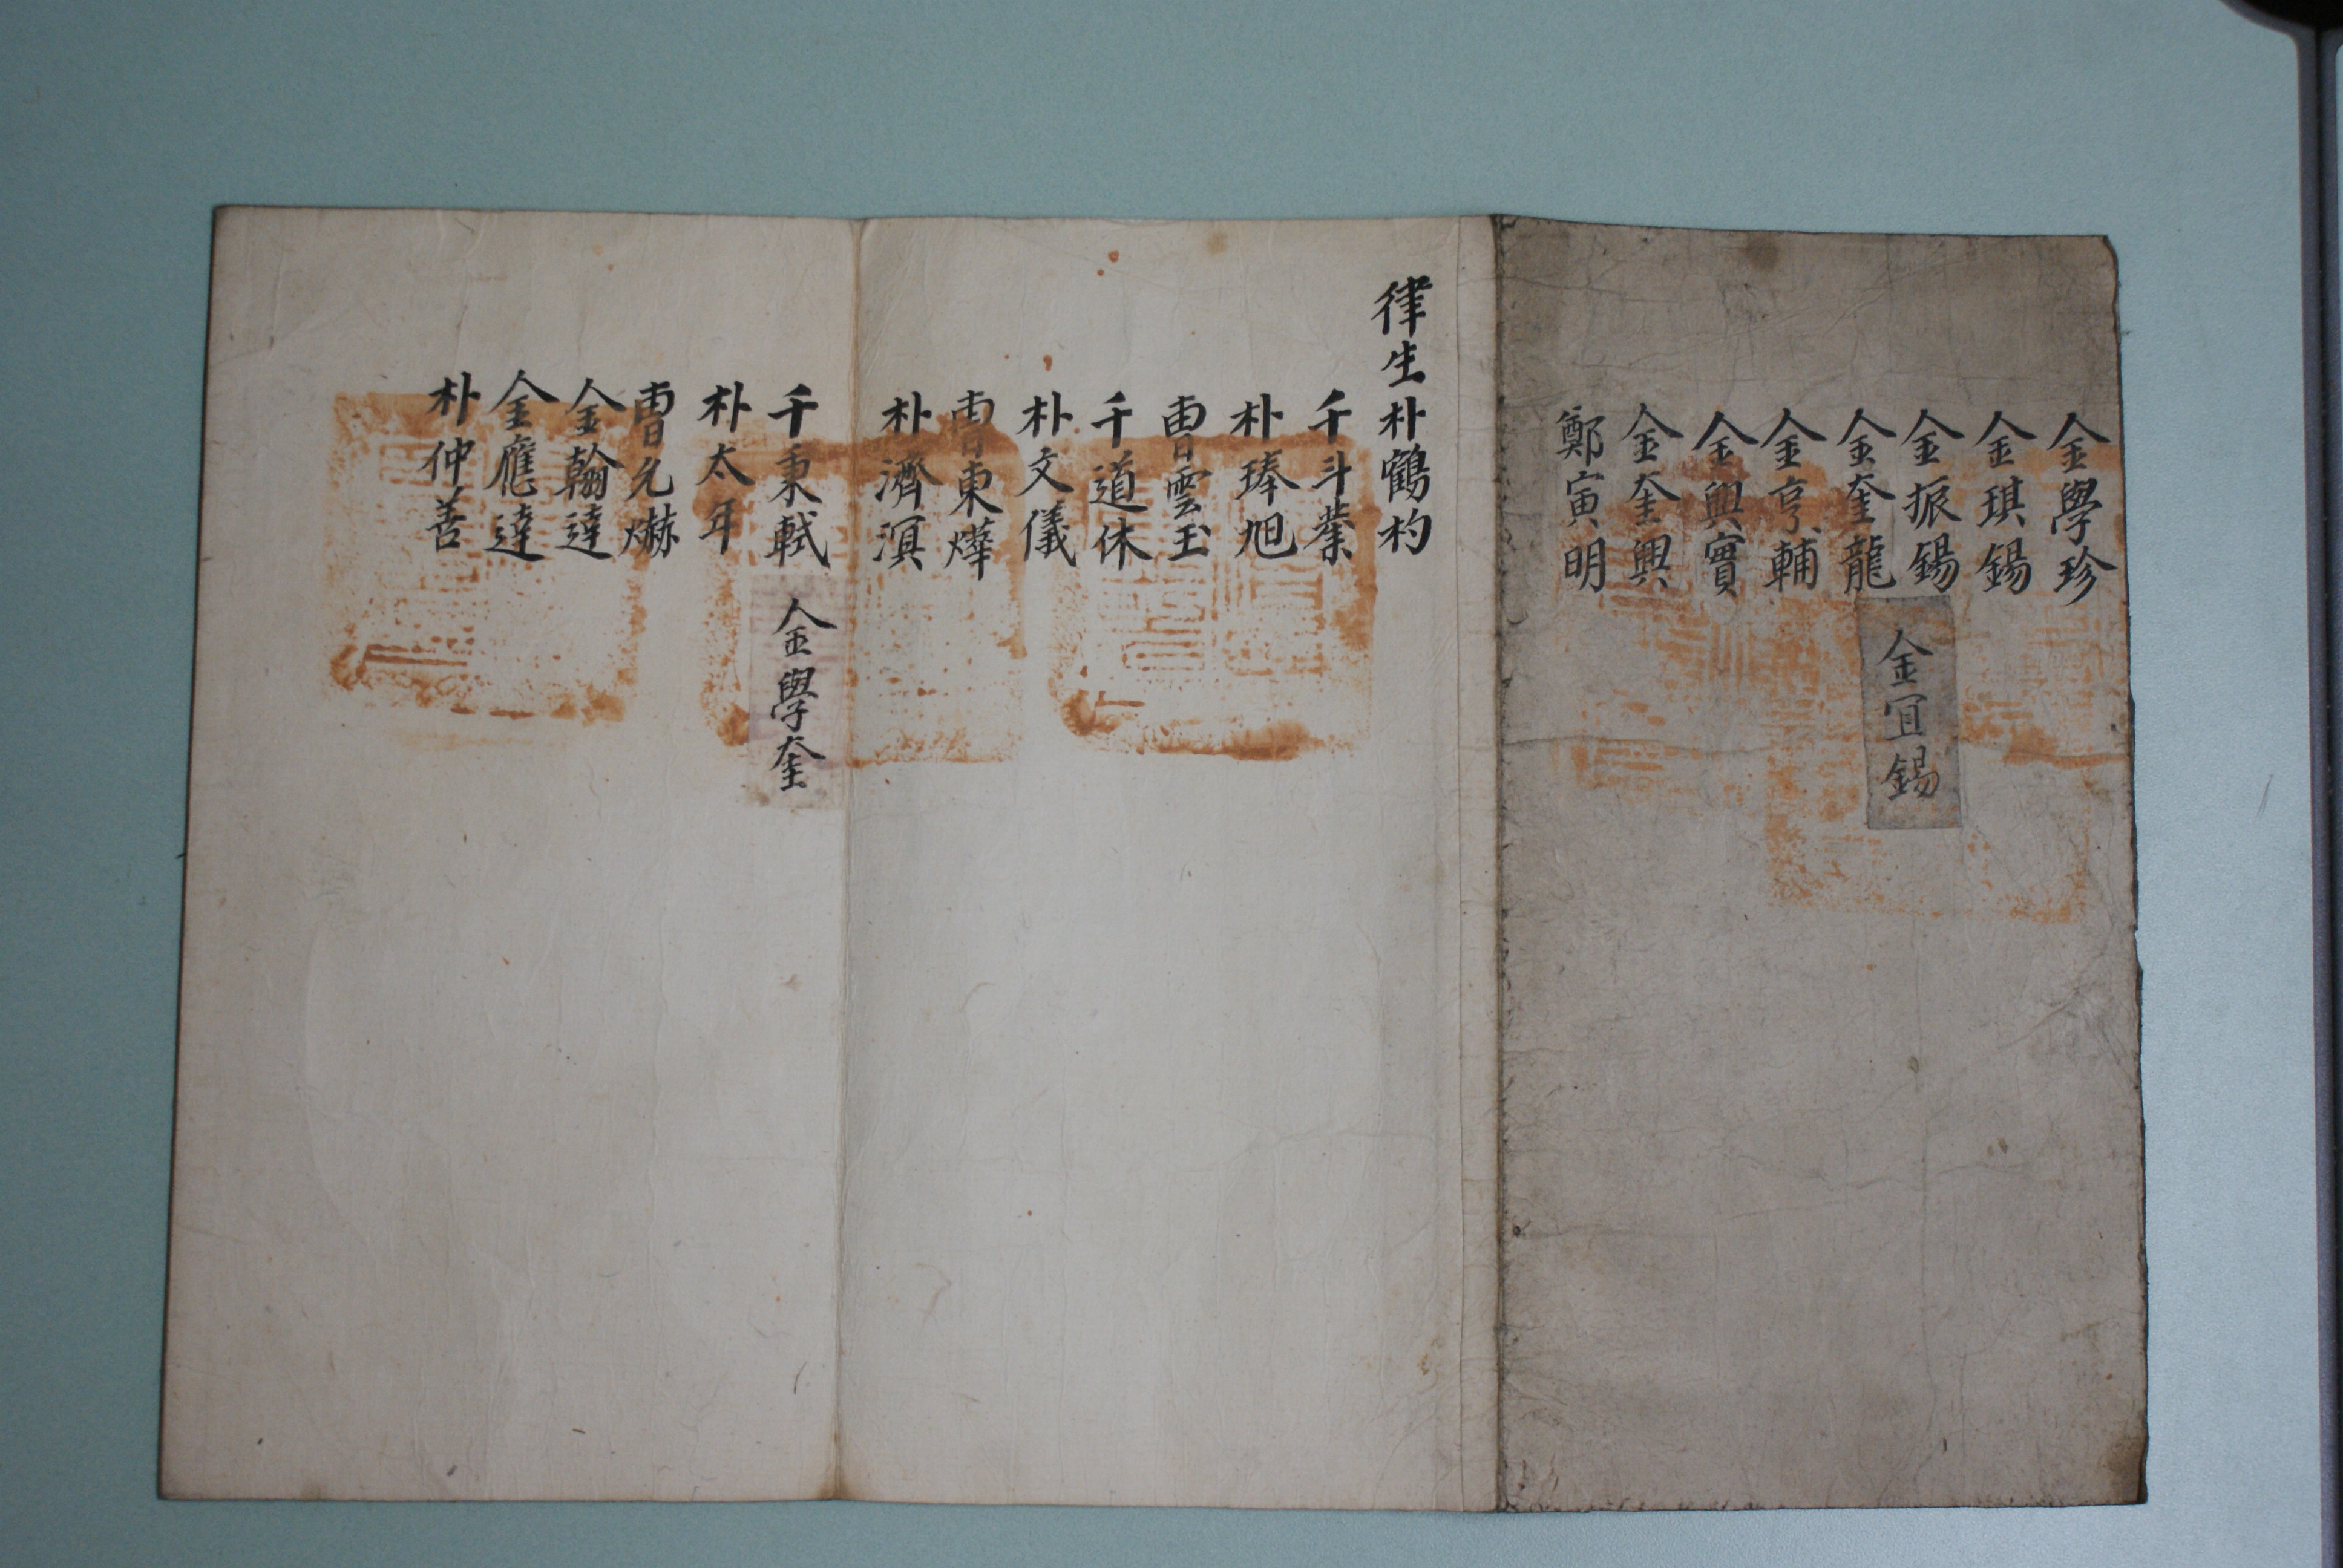 金學珍
金琪錫
金振錫
金宜錫
金奎龍
金亨輔
金興實
金奎興
鄭寅明
律生朴鶴杓
千斗榮
朴琫旭
曺雲玉
千道休
朴文儀
曺東燁
朴濟溟
千秉軾
金學奎
朴太年
曺允爀
金翰達
金應達
朴仲善